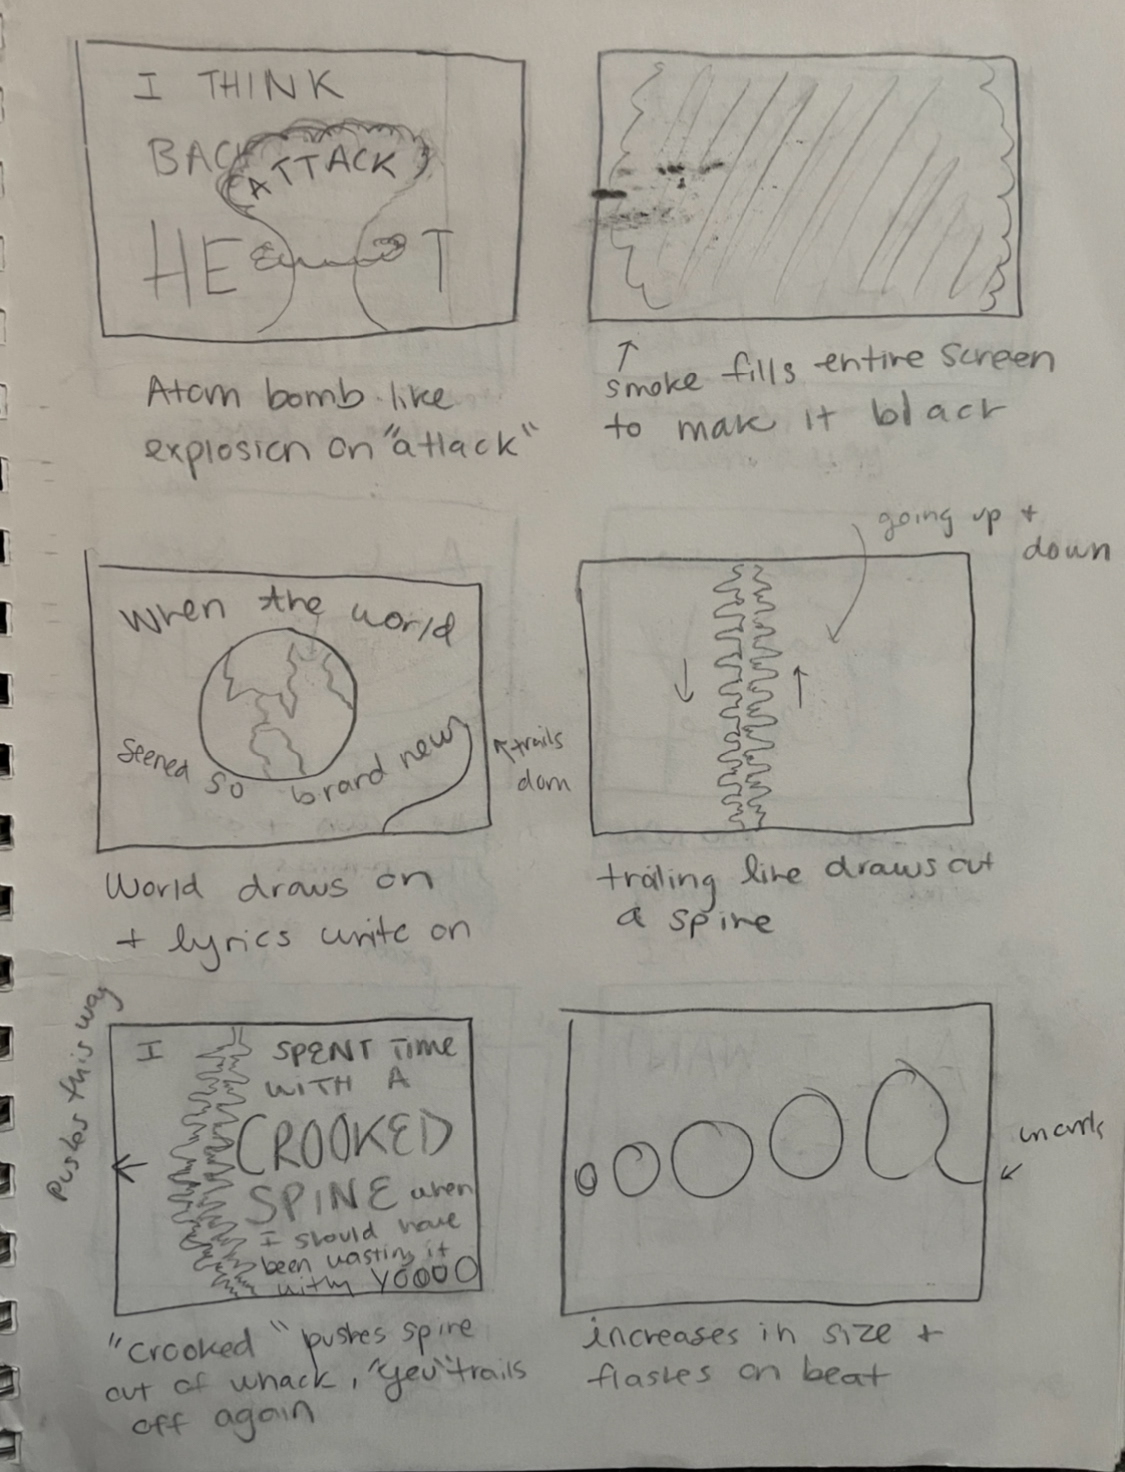 I THINK
BACK
ATTACK
HE T
Atom bomb like
explosion on "attack"
↑
smoke fills entire screen
to make it black
when the world
seened so brand new
↖trails
down
World draws on
+ lyrics write on
going up +
down
↓ ↑
trailing line draws out
a spine
pushes this way
←
I SPENT TIME
WITH A
CROOKED
SPINE when
I should have
been wasting it
with YOOOO
"crooked" pushes spine
out of whack, "you" trails
off again
uncurls
↙
increases in size +
flashes on beat